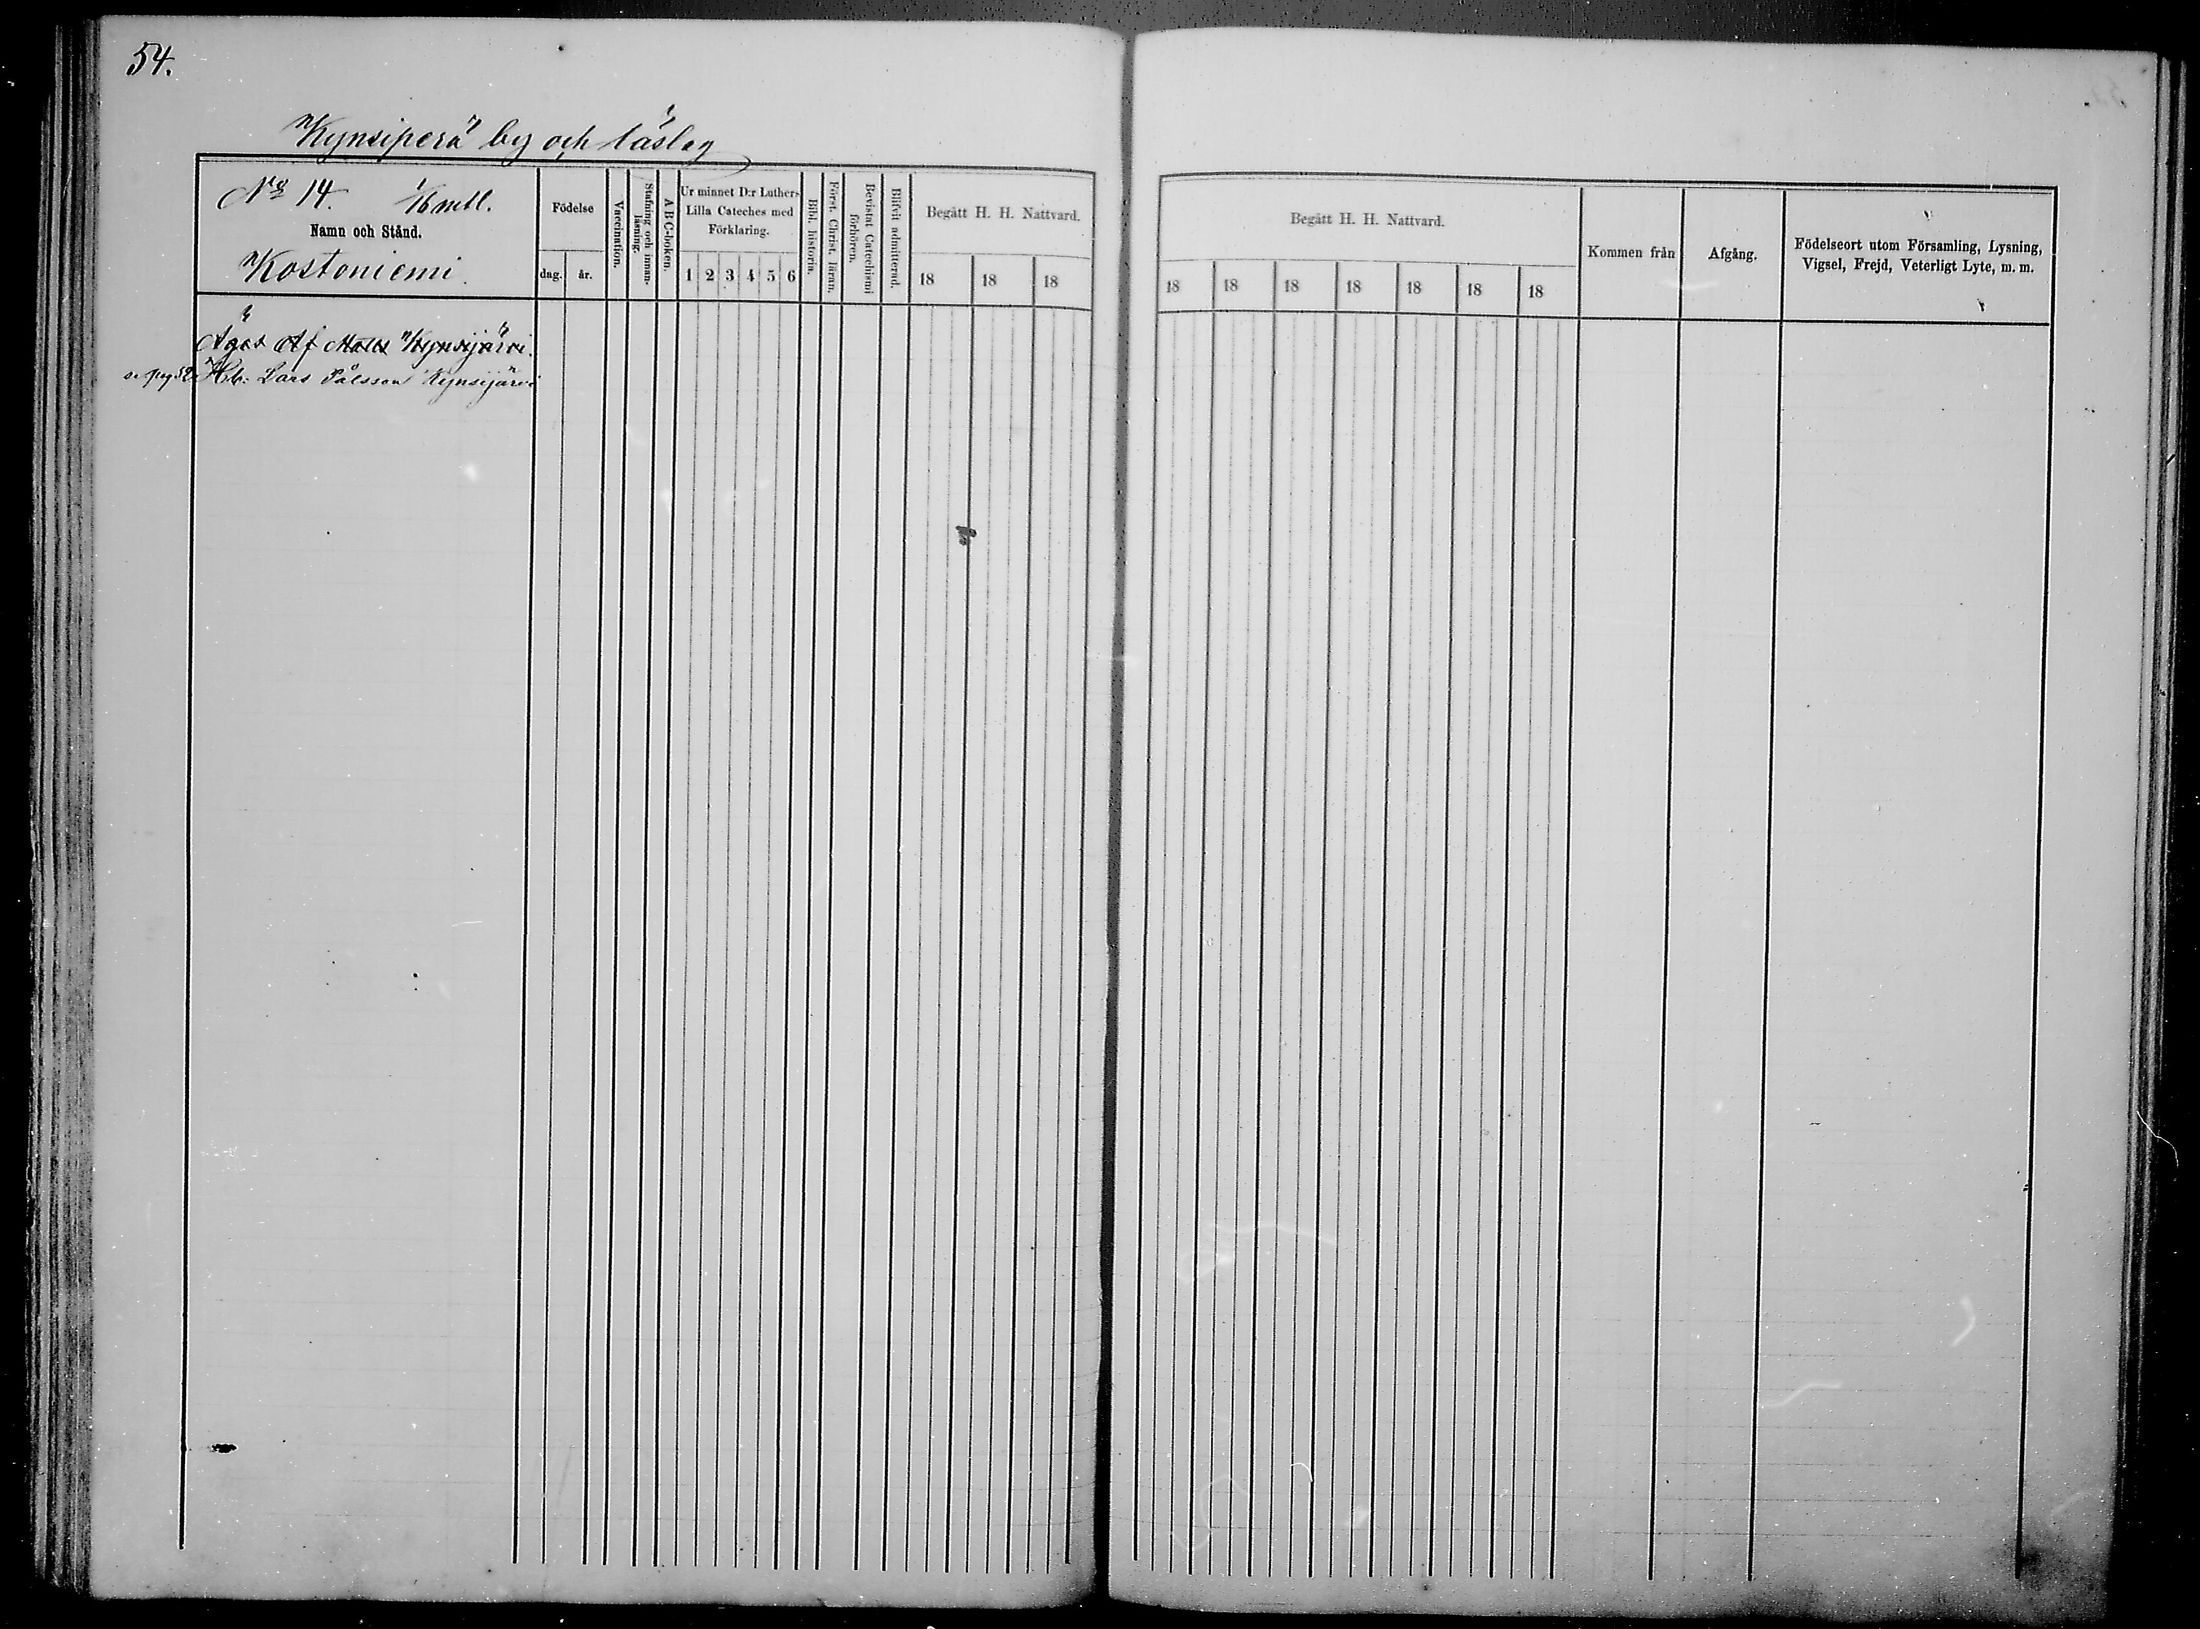 54.
Kynsiperä by och läslag
No 14. 1/6 mtl.
Namn och Stånd.
Kostoniemi.
Födelse
dag. år.
Vaccination.
Stafning och innan-
läsning.
A B C-boken.
Ur minnet D:r Luthers
Lilla Cateches med
Förklaring.
1 2 3 4 5 6
Bibl. historia.
Först. Christ. läran.
Bevistat Catechismi
förhören.
Blifvit admitterad.
Begått H. H. Nattvard.
18 18 18
Äges Af Matts Kynsijärvi.
se pag 52 Hb: Lars Pålsson Kynsijärvi
Begått H. H. Nattvard.
18 18 18 18 18 18 18
Kommen från
Afgång.
Födelseort utom Församling, Lysning,
Vigsel, Frejd, Veterligt Lyte, m. m.